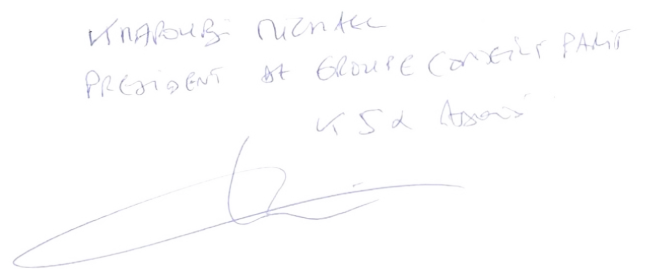 KHAROUBI MICHAEL
PRESIDENT DE GROUPE CONSEILS PARIT
K S &